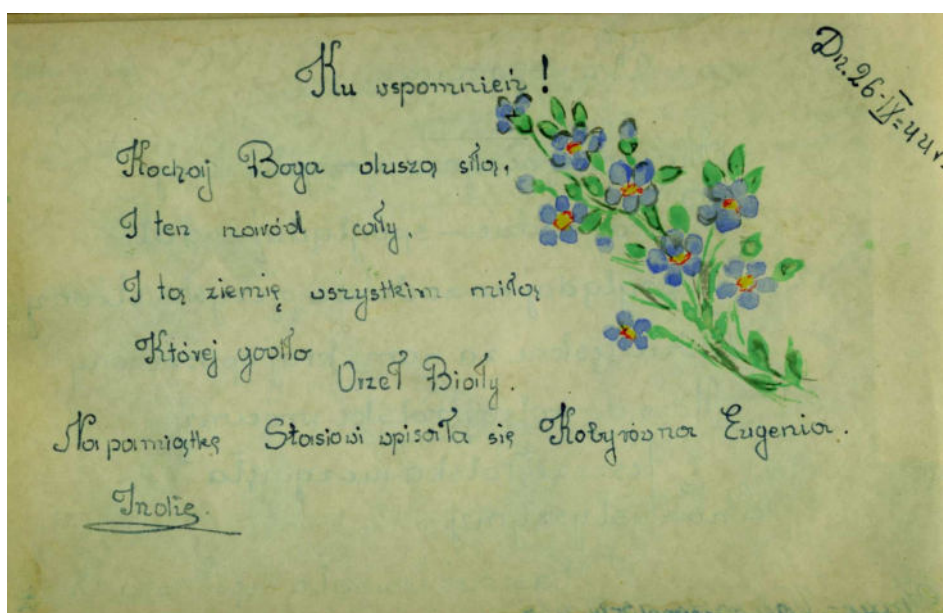 Dn. 26-IX-44r.
Ku wspomnień!
Kochaj Boga duszą siłą,
I ten naród cały.
I tą ziemię wszystkim miłą
Której godło
Orzeł Biały.
Na pamiątkę Stasiowi wpisała się Kobyrówna Eugenia.
Indie.